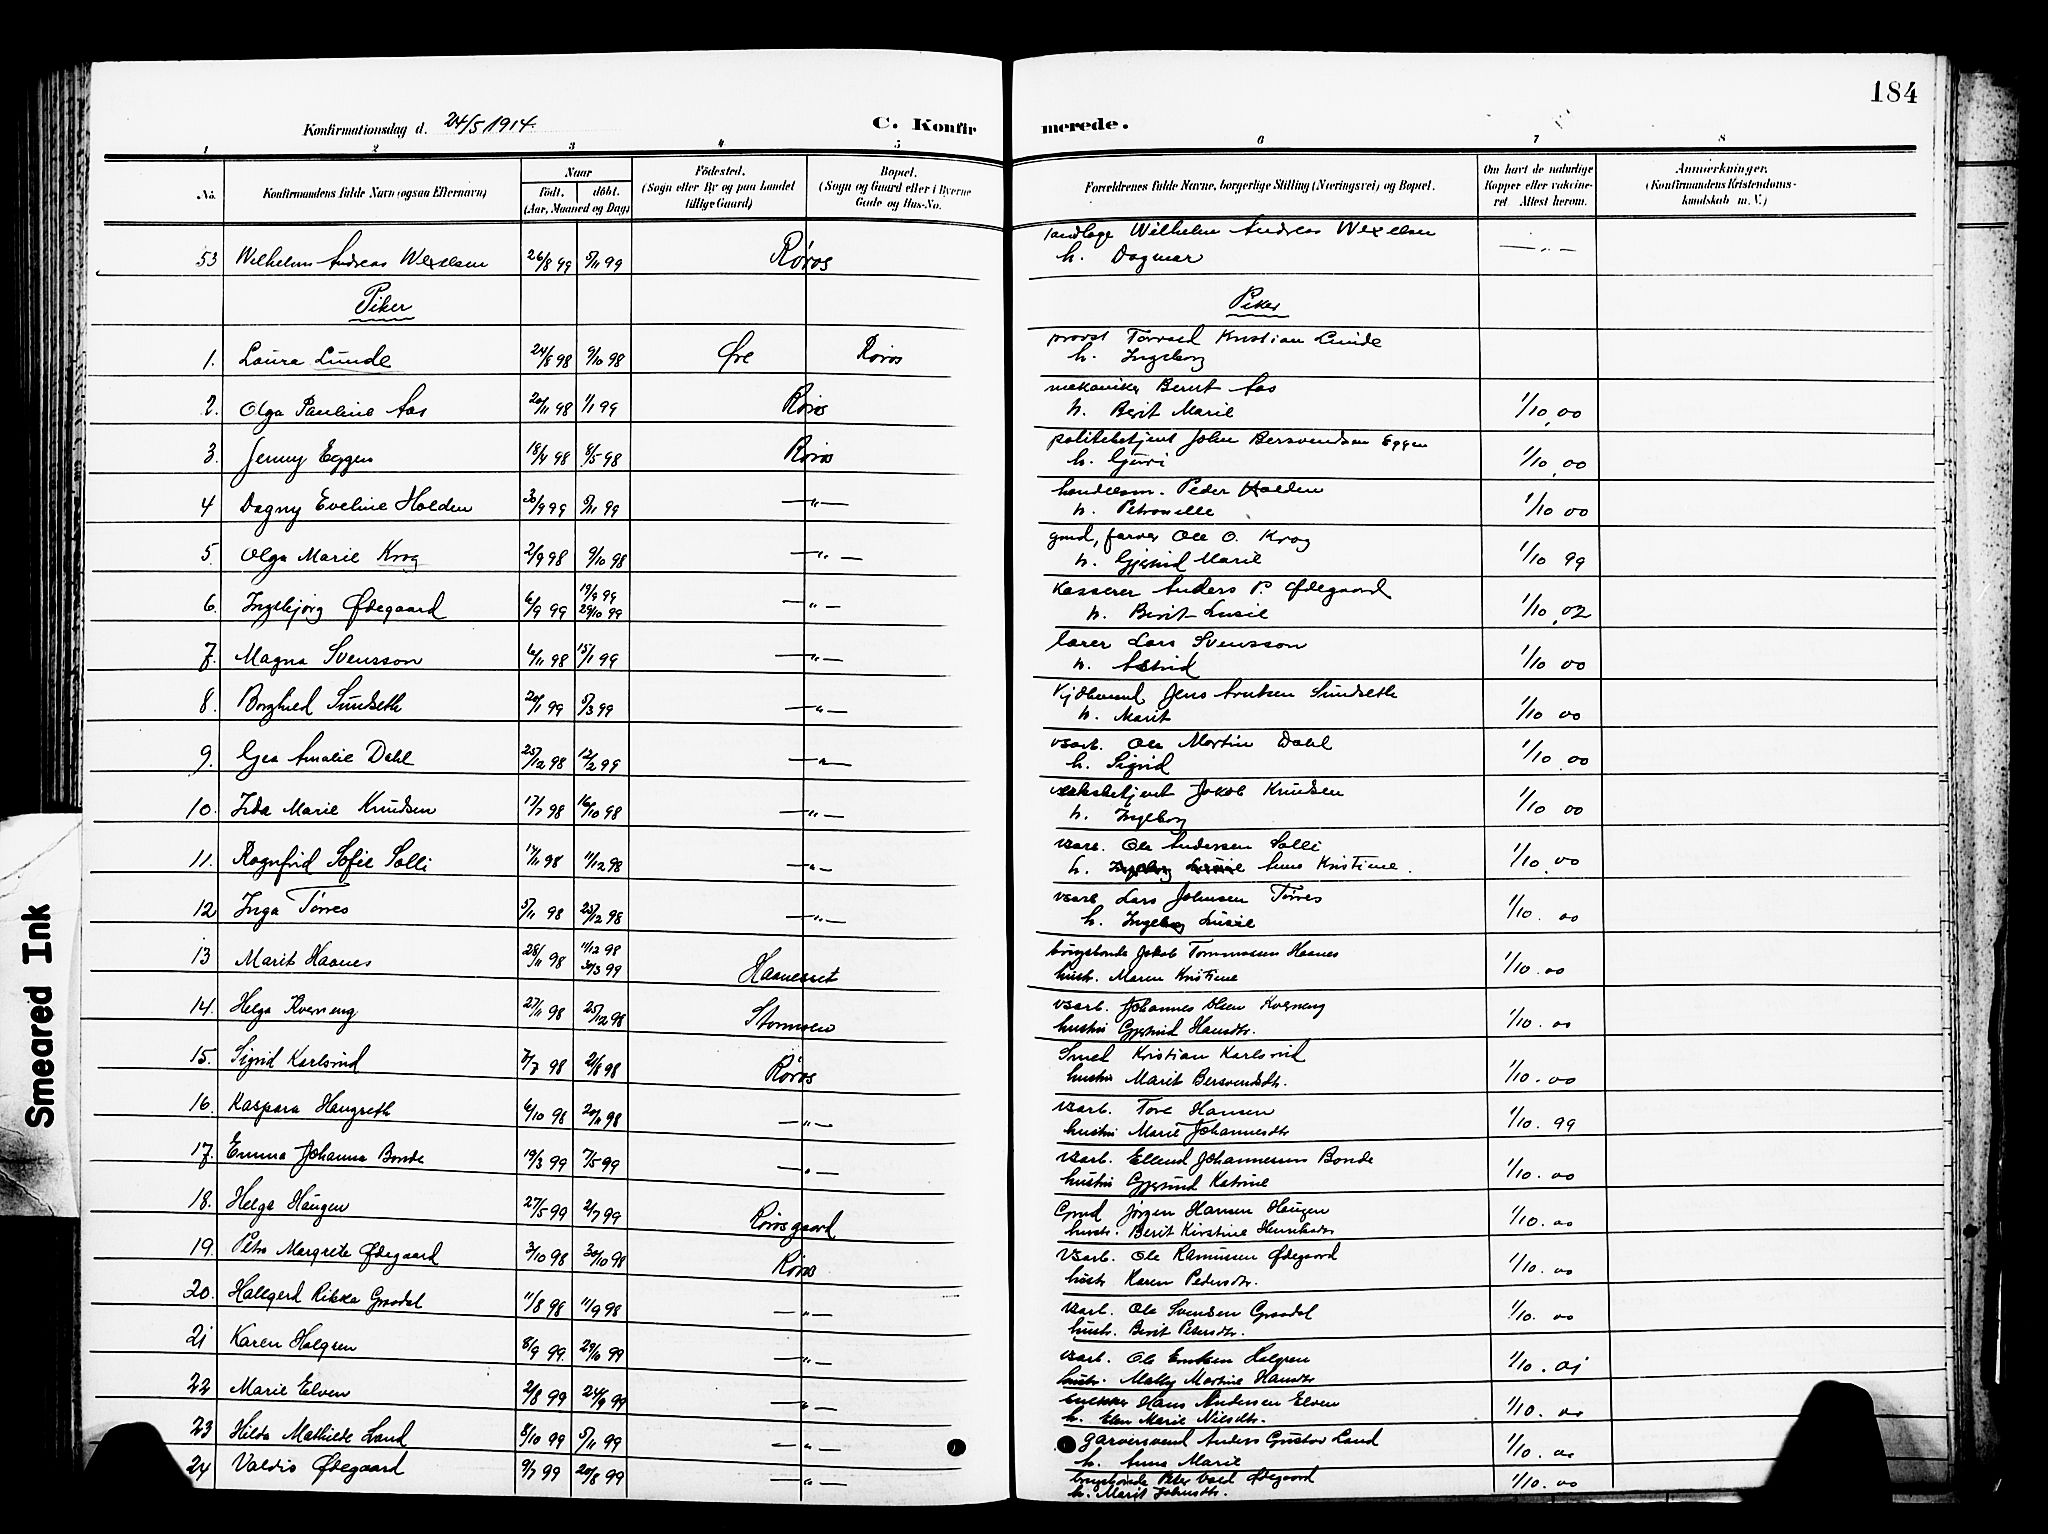 184
Konfirmationsdag d. 24/5 1914.
C. Konfirmerede.
1 2 3 4 5 6 7 8
No. Konfirmandens fulde Navn (ogsaa Efternavn) Naar født. døbt. (Aar, Maaned og Dag) Fødested. (Sogn eller By og paa Landet tillige Gaard) Bopæl. (Sogn og Gaard eller i Byerne Gade og Hus-No. Forældrenes fulde Navne, borgerlige Stilling (Næringsvei) og Bopæl. Om havt de naturlige Kopper eller vakcineret. Attest herom. Anmærkninger. (Konfirmandens Kristendomskundskab m. V.)
53 Wilhelm Andreas Wexelsen 26/8 99 5/11 99 Røros Wilhelm Andreas Wexelsen —"—
h. Dagmar
Piker Piker
1. Laura Lunde 24/8 98 9/10 98 Øre Røros provst Torvald Kristian Lunde
h. Ingeborg
2. Olga Pauline Aas 20/11 98 1/1 99 Røros mekaniker Bernt Aas 1/10 00
h. Berit Marie
3. Jenny Eggen 18/4 98 8/5 98 Røros politibetjent John Bersvendsen Eggen 1/10 00
h. Guri
4 Dagny Eveline Holden 30/9 99 5/11 99 —"— handelsm. Peder Holden 1/10 00
h. Petronelle
5. Olga Marie Krog 2/9 98 9/10 98 —"— gmd, farver Ole O. Krog 1/10 99
h. Gjertrud Marie
6. Ingebjørg Ødegaard 6/9 99 19/9 99 29/10 99 —"— Kasserer Anders P. Ødegaard 1/10 02
h. Berit Lusie
7. Magna Svensson 6/11 98 15/1 99 —"— lærer Lars Svensson 1/10 00
h. Astrid
8. Borghild Sundseth 20/1 99 5/3 99 —"— Jens Arntsen Sundseth 1/10 00
h. Marit
9. Gea Amalie Dahl 25/12 98 12/2 99 —"— vsarb. Ole Martin Dahl 1/10 00
h. Sigrid
10. Ida Marie Knudsen 17/7 98 16/10 98 —"— verksbetjent Jakob Knudsen 1/10 00
h. Ingeborg
11. Ragnfrid Sofie Solli 14/11 98 11/12 98 —"— vsarb. Ole Andersen Solli 1/10 00
h. Anne Kristine.
12 Inga Tørres 5/11 98 25/12 98 —"— vsarb. Lars Johnsen Tørres 1/10. 00
h. Ingeborg Lusie
13 Marit Haanes 28/11 98 11/12 98 30/3 99 Haanesset brugsbonde Jakob Tommasen Haanes 1/10. 00
hust. Maren Kristine
14. Helga Kverneng 27/11 98 25/12 98 Stormoen vsarb. Johannes Olsen Kverneng 1/10. 00
hustru Gjertrud Hansdtr.
15. Sigrid Karlsvid 3/7 98 21/8 98 Røros Smed Kristian Karlsvid 1/10. 00
hustru Marit Bersvendsdtr.
16. Kaspara Haugreth 6/10 98 20/11 98 —"— vsarb. Tore Hansen 1/10. 99
hustru Marie Johannesdtr
17. Emma Johanna Bonde 19/3 99 7/5 99 —"— vsarb. Ellend Johannessen Bonde 1/10. 00
hustru Gjertrud Katrine
18. Helga Haugen 27/5 99 2/7 99 Rørosgaard Gmd Jørgen Hansen Haugen 1/10. 00
hustr. Berit Kirstine Henriksdtr
19. Petra Margrete Ødegaard 3/10 98 30/10 98 Røros Vsarb. Ole Rasmussen Ødegaard 1/10. 00
hustr Karen Pedersdtr.
20. Hallgerd Rikka Graadal 11/8 98 11/9 98 —"— vsarb. Ole Svendsen Graadal 1/10. 00
hustr. Berit Petersdtr.
21 Karen Holgren 8/9 99. 29/10 99 —"— vsarb. Ole Holgren 1/10. 01
hustr. Martine Hansdtr
22 Marie Elven 2/8 99 24/9 99 —"— snekker Hans Andersen Elven 1/10. 00
h. Elen Marie Nilsdtr.
23 Hilda Mathilde Land 8/10 99 5/11 99 —"— garversvend Anders Gustav Land 1/10. 00
h. Anna Marie
24 Valdis Ødegaard 9/7 99 20/8 99 —"— brugsbonde Peter Ødegaard 1/10. 00
h. Marit Johnsdtr.
Smeared Ink